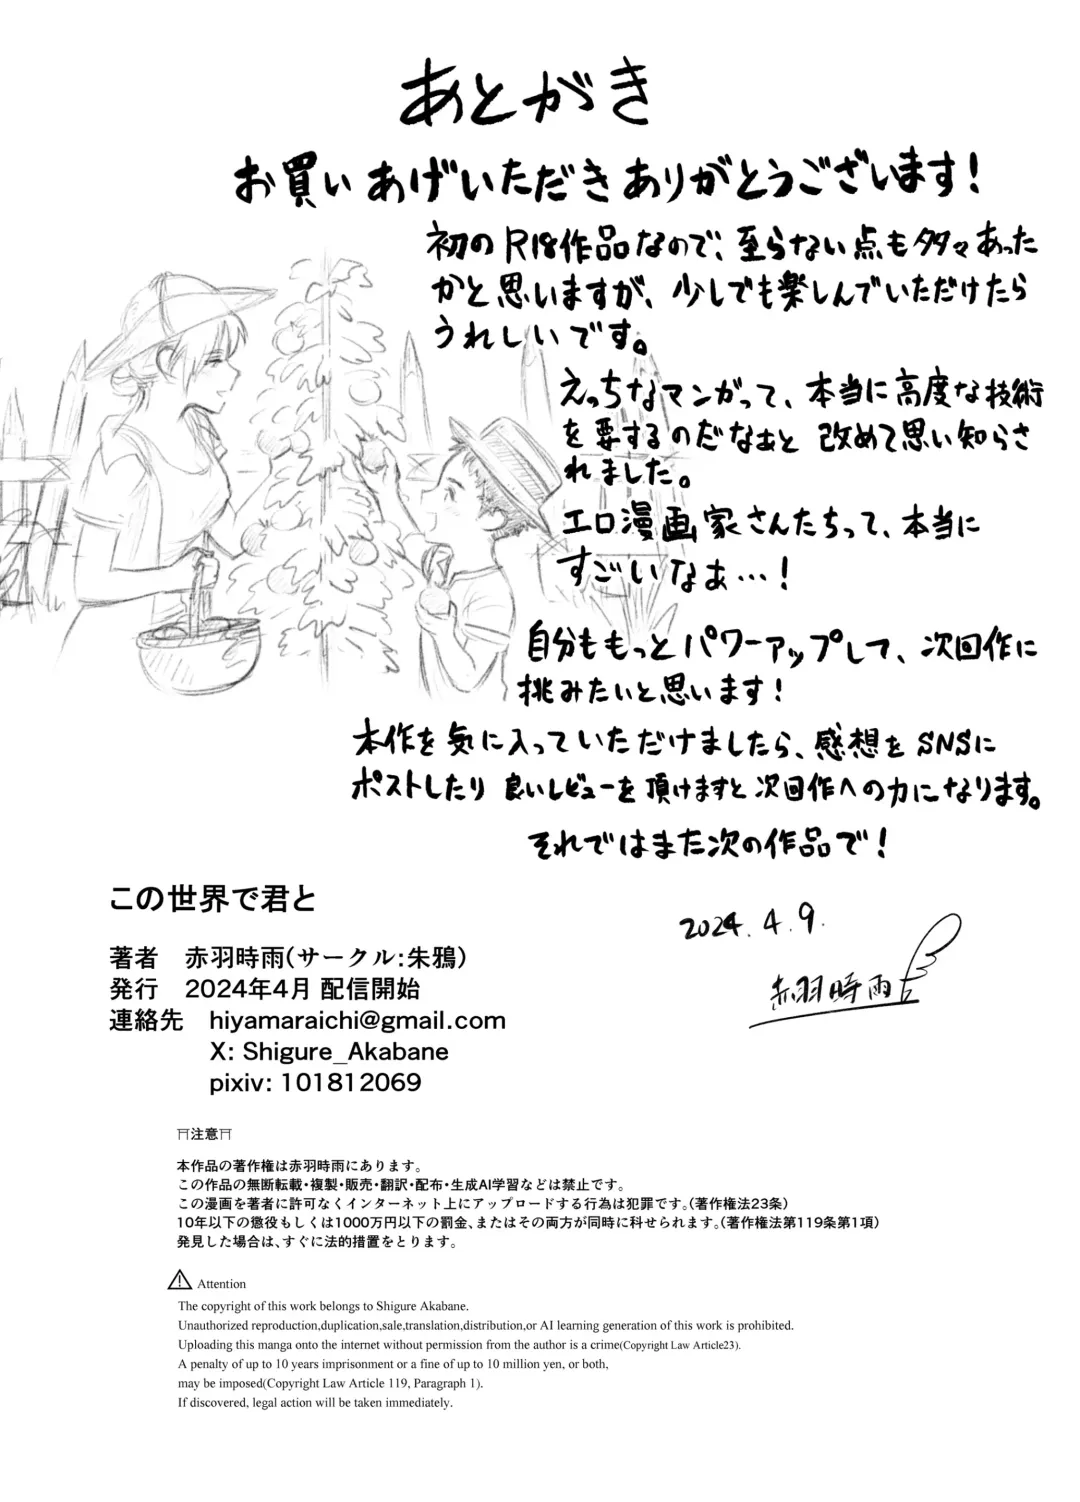 あとがき
お買いあげいただきありがとうございます!
初のR18作品なので、至らない点も多々あった
かと思いますが、少しでも楽しんでいただけたら
うれしいです。
えっちなマンガって、本当に高度な技術
を要するのだなぁと改めて思い知らさ
れました。
エロ漫画家さんたちって、本当に
すごいなぁ…!
自分ももっとパワーアップして、次回作に
挑みたいと思います!
本作を気に入っていただけましたら、感想をSNSに
ポストしたり良いレビューを頂けますと次回作への力になります。
それではまた次の作品で!
2024.4.9.
赤羽時雨
この世界で君と
著者 赤羽時雨(サークル:朱鴉)
発行 2024年4月 配信開始
連絡先 hiyamaraichi@gmail.com
X: Shigure_Akabane
pixiv: 101812069
⛩注意⛩
本作品の著作権は赤羽時雨にあります。
この作品の無断転載・複製・販売・翻訳・配布・生成AI学習などは禁止です。
この漫画を著者に許可なくインターネット上にアップロードする行為は犯罪です。(著作権法23条)
10年以下の懲役もしくは1000万円以下の罰金、またはその両方が同時に科せられます。(著作権法第119条第1項)
発見した場合は、すぐに法的措置をとります。
⚠ Attention
The copyright of this work belongs to Shigure Akabane.
Unauthorized reproduction,duplication,sale,translation,distribution,or AI learning generation of this work is prohibited.
Uploading this manga onto the internet without permission from the author is a crime(Copyright Law Article23).
A penalty of up to 10 years imprisonment or a fine of up to 10 million yen, or both,
may be imposed(Copyright Law Article 119, Paragraph 1).
If discovered, legal action will be taken immediately.